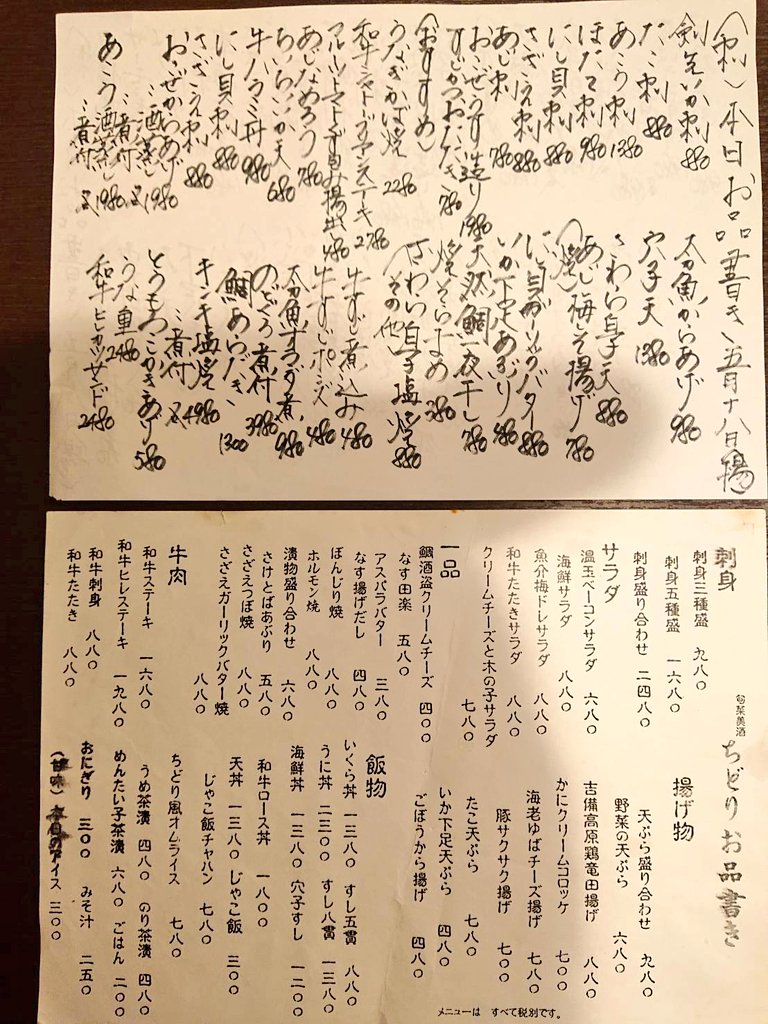 〈刺〉本日お品書き、五月十八日〈揚〉
剣先いか刺 880
たこ刺 880
あこう刺 1380
ほたて刺 980
にし貝刺 880
さざえ刺 880
あじ刺 780
おこぜうす造り 1980
すじかつおたたき 780
〈おすすめ〉
うなぎかば焼 2280
和牛シャトーブリアンステーキ 2780
フルーツトマト 揚出 480
あじなめろう 780
ちいちいいか天 680
牛ハラミ丼 980
にし貝刺 880
さざえ刺 880
おこぜからあげ
〃酒蒸し
〃煮付 各1980
あこう酒蒸し
〃煮付 各1980
太刀魚からあげ 980
穴子天 1380
さわら白子天 880
あじ梅しそ揚げ 780
〈焼〉
にし貝ガーリックバター 880
いか下足あぶり 480
天然鯛一夜干し 780
焼そらまめ 380
さわら白子塩焼 880
〈その他〉
牛すじ煮込み 480
牛すじポンズ 480
太刀魚 煮 980
のどぐろ煮付 3980
鯛あらだき 1300
キンキ塩焼
〃煮付 各4980
とうもろこしかきあげ 580
うな重 2480
和牛ヒレカツサンド 2480
旬菜美酒 ちどりお品書き
刺身
刺身三種盛 九八〇
刺身五種盛 一六八〇
刺身盛り合わせ 二四八〇
サラダ
温玉ベーコンサラダ 六八〇
海鮮サラダ 八八〇
魚介梅ドレサラダ 八八〇
和牛たたきサラダ 八八〇
クリームチーズと木の子サラダ 七八〇
一品
鯛酒盗クリームチーズ 四〇〇
なす田楽 五八〇
アスパラバター 三八〇
なす揚げだし 四八〇
ぼんじり焼 八八〇
ホルモン焼 八八〇
漬物盛り合わせ 六八〇
さけとばあぶり 五八〇
さざえつぼ焼 八八〇
さざえガーリックバター焼 八八〇
牛肉
和牛ステーキ 一六八〇
和牛ヒレステーキ 一九八〇
和牛刺身 八八〇
和牛たたき 八八〇
揚げ物
天ぷら盛り合わせ 九八〇
野菜の天ぷら 六八〇
吉備高原鶏竜田揚げ 八八〇
かにクリームコロッケ 七〇〇
海老ゆばチーズ揚げ 七八〇
豚サクサク揚げ 七〇〇
たこ天ぷら 七八〇
いか下足天ぷら 四八〇
ごぼうから揚げ 四八〇
飯物
いくら丼 一三八〇 すし五貫 八八〇
うに丼 二三〇〇 すし八貫 一三八〇
海鮮丼 一三八〇 穴子すし 一二〇〇
和牛ロース丼 一八〇〇
天丼 一三八〇 じゃこ飯 三〇〇
じゃこ飯チャハン 七八〇
ちどり風オムライス 七八〇
うめ茶漬 四八〇 のり茶漬 四八〇
めんたい子茶漬 六八〇 ごはん 二〇〇
おにぎり 三〇〇 みそ汁 二五〇
(甘味) 本日のアイス 三〇〇
メニューは すべて税別です。